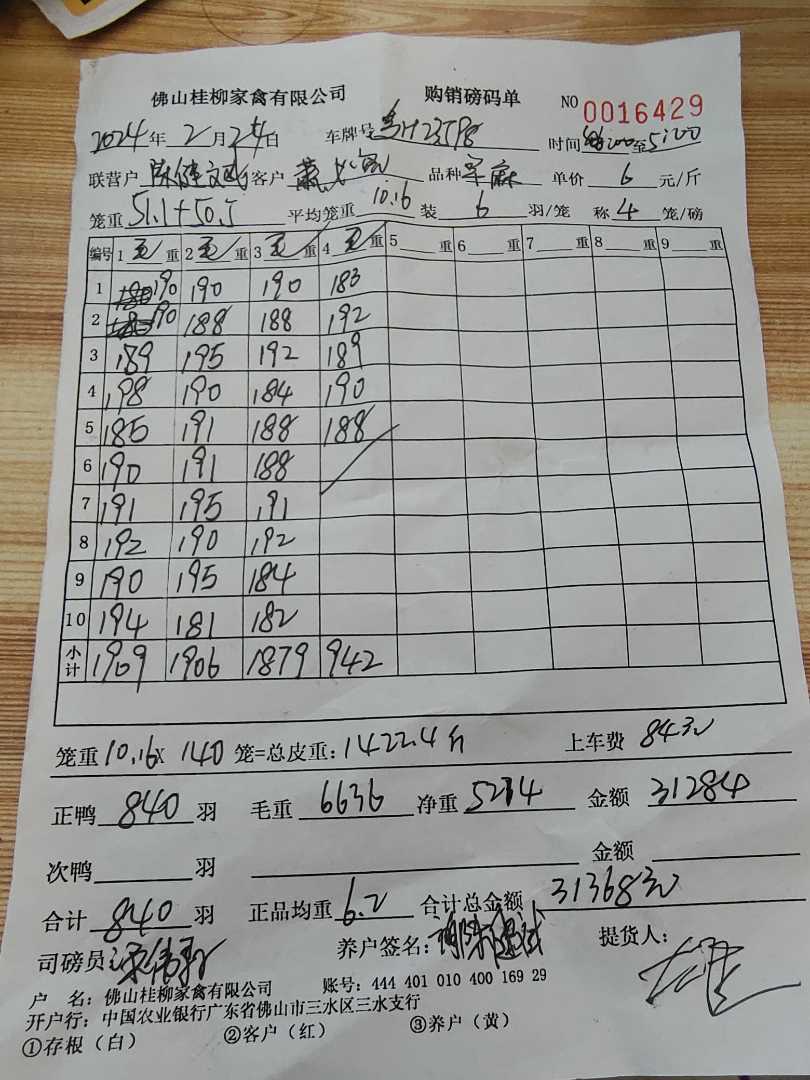 佛山桂柳家禽有限公司 购销磅码单 NO 0016429
2024年2月24日 车牌号 H23598 时间 至5:00
联营户 陈健文 客户 品种 军麻 单价 6 元/斤
笼重 51.1+50.5 平均笼重 10.16 装 6 羽/笼 称 4 笼/磅
编号 1 毛 重 2 毛 重 3 毛 重 4 毛 重 5 重 6 重 7 重 8 重 9 重
1 190 190 190 183
2 190 188 188 192
3 189 195 192 189
4 198 190 184 190
5 185 191 188 188
6 190 191 188
7 191 195 191
8 192 190 192
9 190 195 184
10 194 181 182
小计 1909 1906 1879 942
笼重 10.16 X 140 笼=总皮重: 1422.4斤 上车费 84元
正鸭 840 羽 毛重 6636 净重 5214 金额 31284
次鸭 羽 金额
合计 840 羽 正品均重 6.2 合计总金额 31368元
司磅员: 养户签名: 提货人:
户 名: 佛山桂柳家禽有限公司 账号: 444 401 010 400 169 29
开户行: 中国农业银行广东省佛山市三水区三水支行
①存根（白） ②客户（红） ③养户（黄）